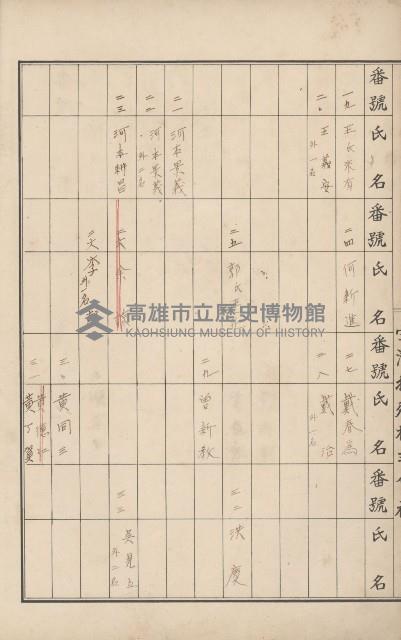 番號 氏名
一九 王氏來有
二〇 王義安 外一名
二一 河本景義
二二 河本景義 外二名
二三 河本耕昌
番號 氏名
二四 何新進
二五 郭氏
二六 余
二六 李 外一名
番號 氏名
二七 戴春為
二八 戴治 外一名
二九 曾新教
三〇 黃同三
三一 黃德仁
黃丁箕
番號 氏名
三二 洪慶
三三 吳見五 外二名
高雄市立歷史博物館
KAOHSIUNG MUSEUM OF HISTORY